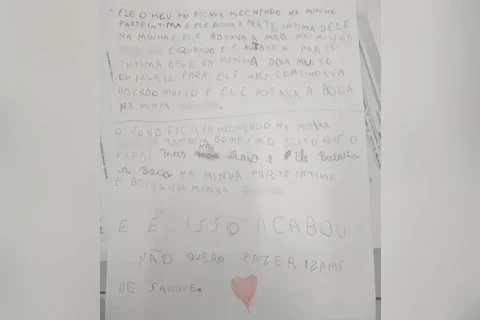 ELE O MEU PAI FICAVA MECHENDO NA MINHA
PARTE INTIMA E ELE BOTAVA A PARTE INTIMA DELE
NA MINHA E ELE BOTAVA A MAO NA MINHA
E QUANDO ELE BOTAVA A PARTE
INTIMA DELE NA MINHA DOIA MUITO
EU FALAVA PARA ELE MAS CONTINUAVA
DOENDO MUITO E ELE BOTAVA A BOCA
NA MINHA
O VOVO FICAVA MECHENDO NA MINHA
TAMBÉM DO MESMO JEITO QUE O
PAPAI mas não doia e Ele Botava
a Boca NA MINHA PARTE INTIMA
E BEIJAVA MINHA
E É ISSO ACABOU
NÃO QUERO FAZER IZAME
DE SANGUE.